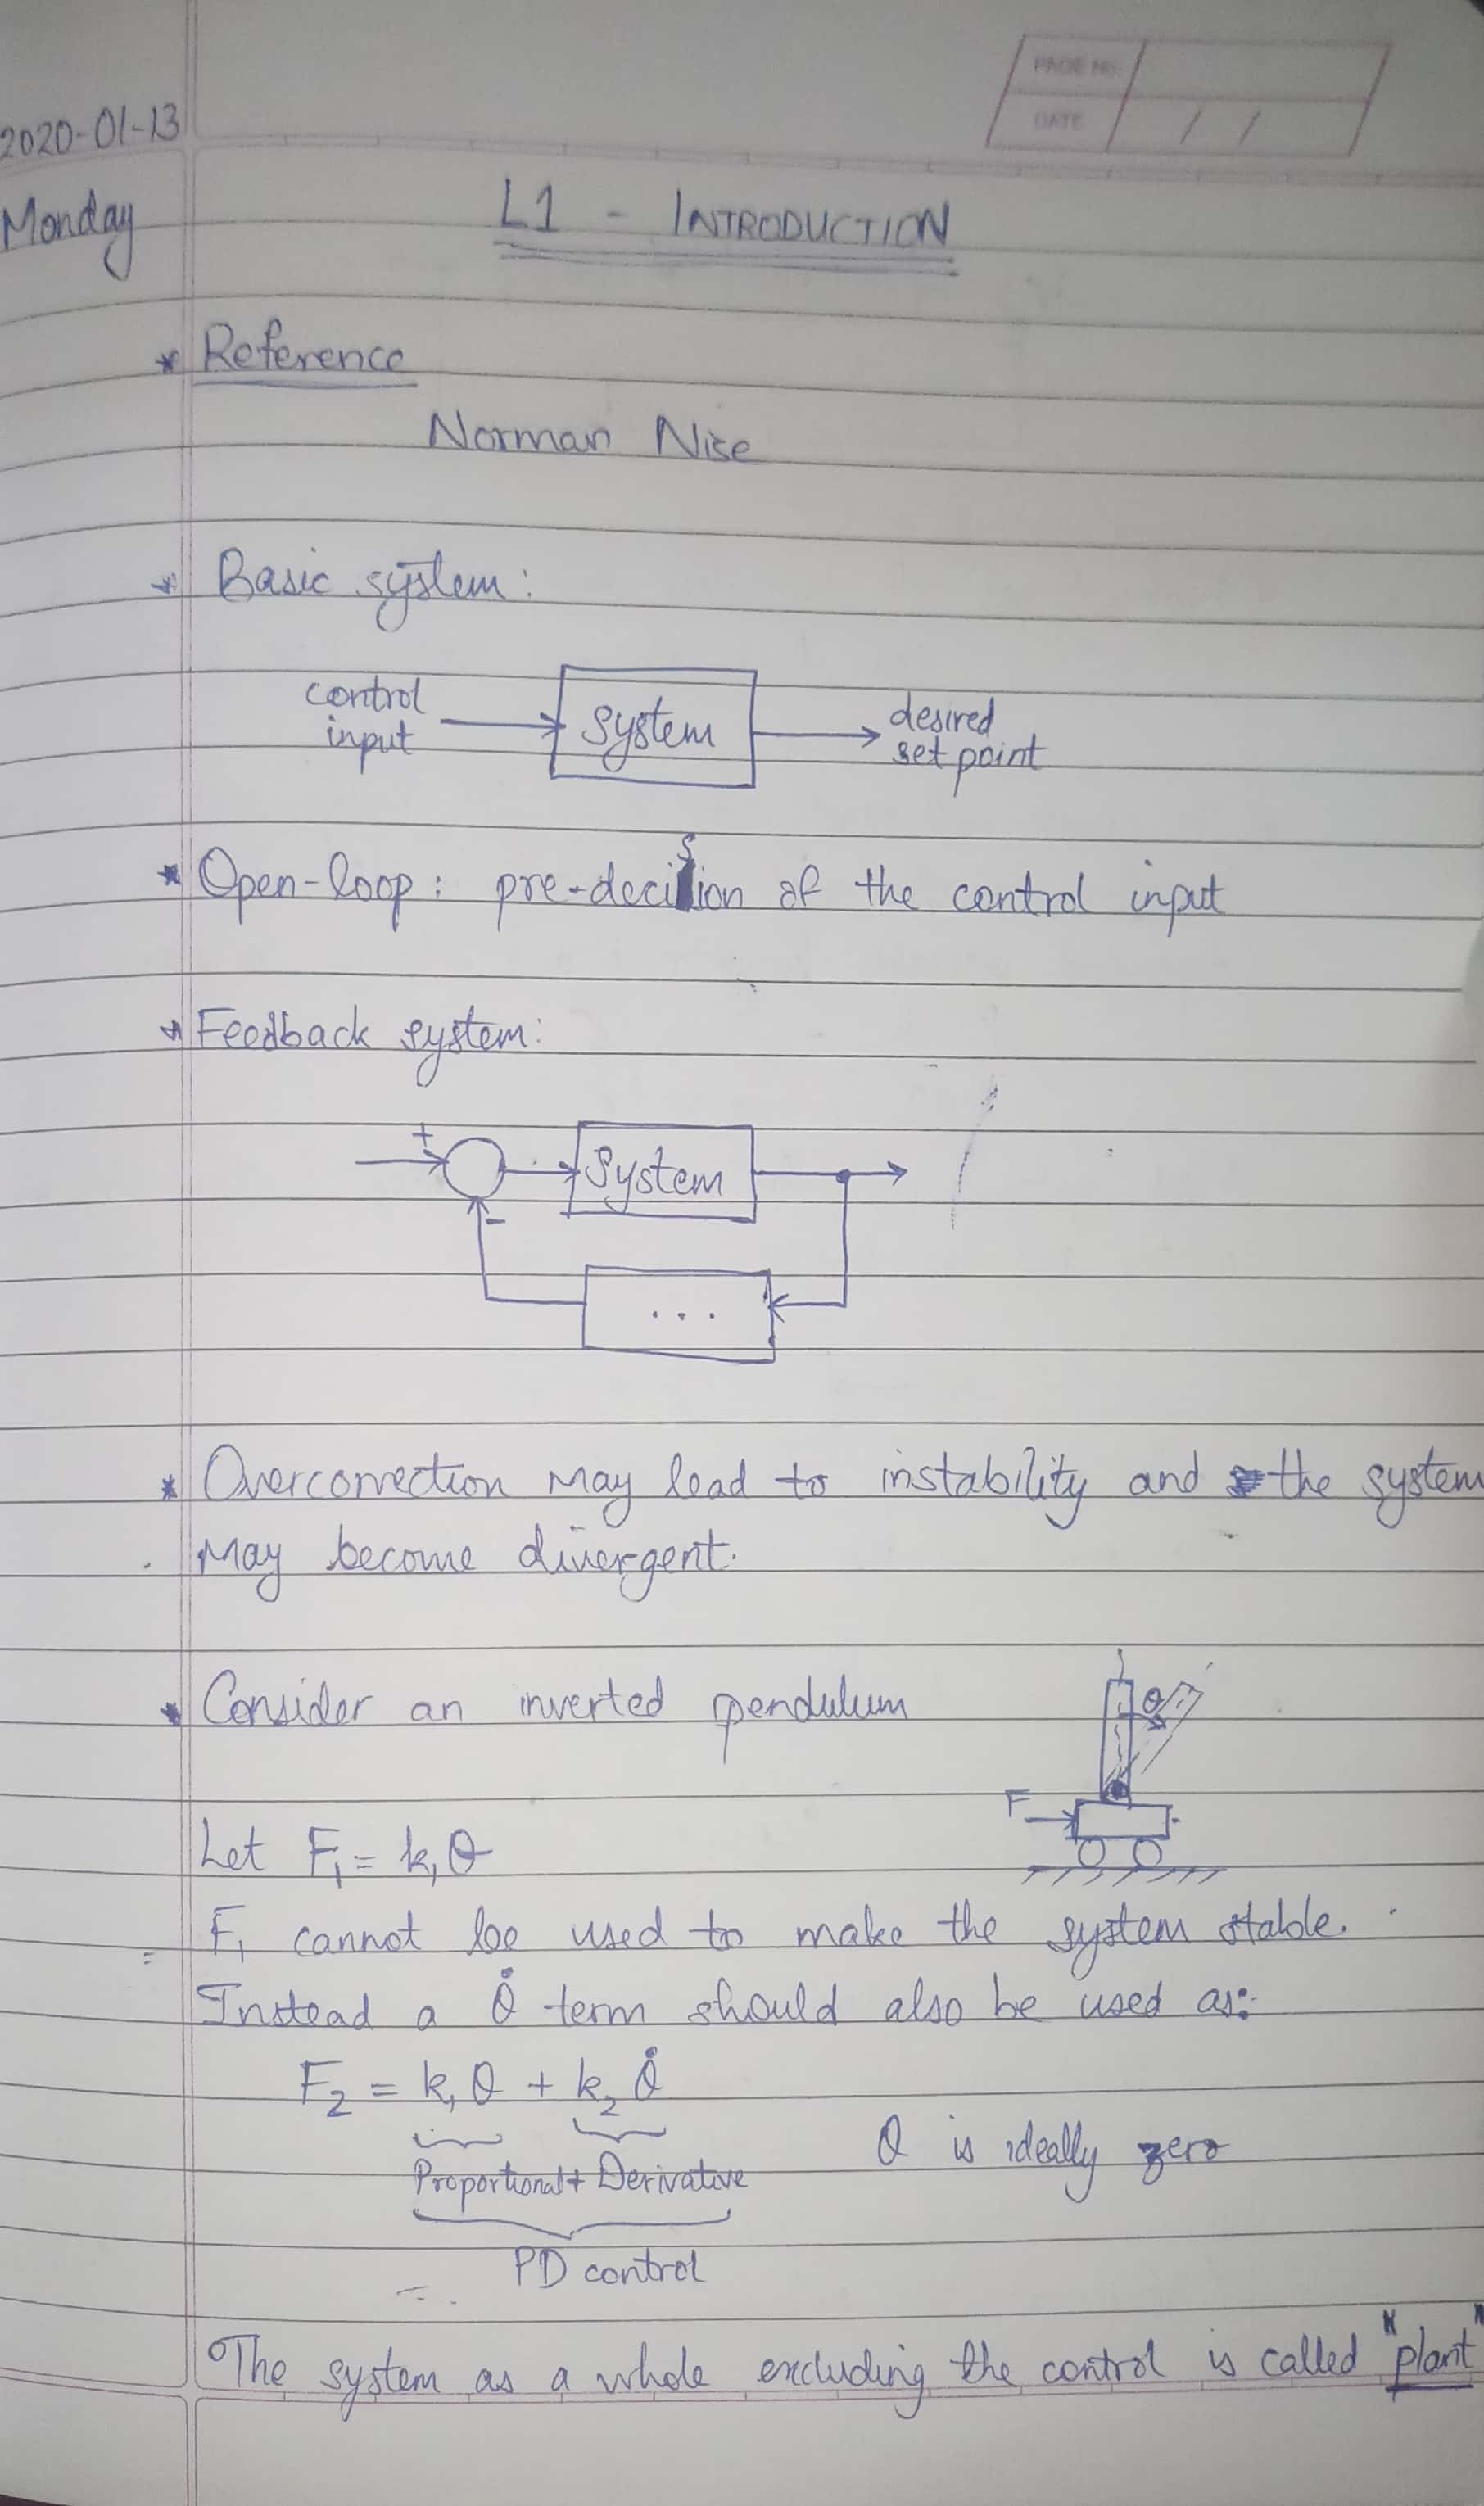 PAGE No.
DATE / /
2020-01-13
Monday
L1 - INTRODUCTION
* Reference
Norman Nise
* Basic system:
control
input
System
desired
set point
* Open-loop: pre-decision of the control input
* Feedback system:
+
System
-
...
* Overcorrection may lead to instability and the system
may become divergent.
* Consider an inverted pendulum
θ
F
Let F₁ = k₁θ
F₁ cannot be used to make the system stable.
Instead a θ̇ term should also be used as:
F₂ = k₁θ + k₂θ̇
θ is ideally zero
Proportional + Derivative
PD control
The system as a whole excluding the control is called "plant"